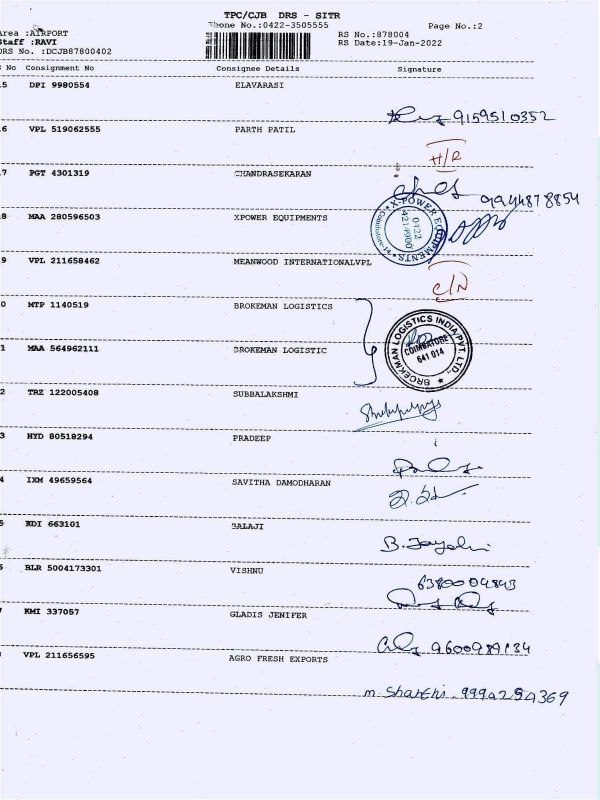 TPC/CJB DRS - SITR
Phone No.:0422-3505555
Page No.:2
Area :AIRPORT
Staff :RAVI
DRS No. :DCJB87800402
RS No.:878004
RS Date:19-Jan-2022
No Consignment No Consignee Details Signature
5 DPI 9980554 ELAVARASI
9159510352
6 VPL 519062555 PARTH PATIL
H/R
7 PGT 4301319 CHANDRASEKARAN
9944878854
8 MAA 280596503 XPOWER EQUIPMENTS
X-POWER EQUIPMENTS
0422
4214900
9 VPL 211658462 MEANWOOD INTERNATIONALVPL
C/N
0 MTP 1140519 BROKEMAN LOGISTICS
BROEKMAN LOGISTICS INDIA PVT. LTD.,
COIMBATORE
641 014
1 MAA 564962111 BROKEMAN LOGISTIC
2 TRZ 122005408 SUBBALAKSHMI
3 HYD 80518294 PRADEEP
4 IXM 49659564 SAVITHA DAMODHARAN
5 KDI 663101 BALAJI
B. Jayalni
BLR 5004173301 VISHNU
6380004843
KMI 337057 GLADIS JENIFER
9600989134
VPL 211656595 AGRO FRESH EXPORTS
m. Shanthi. 9994254369